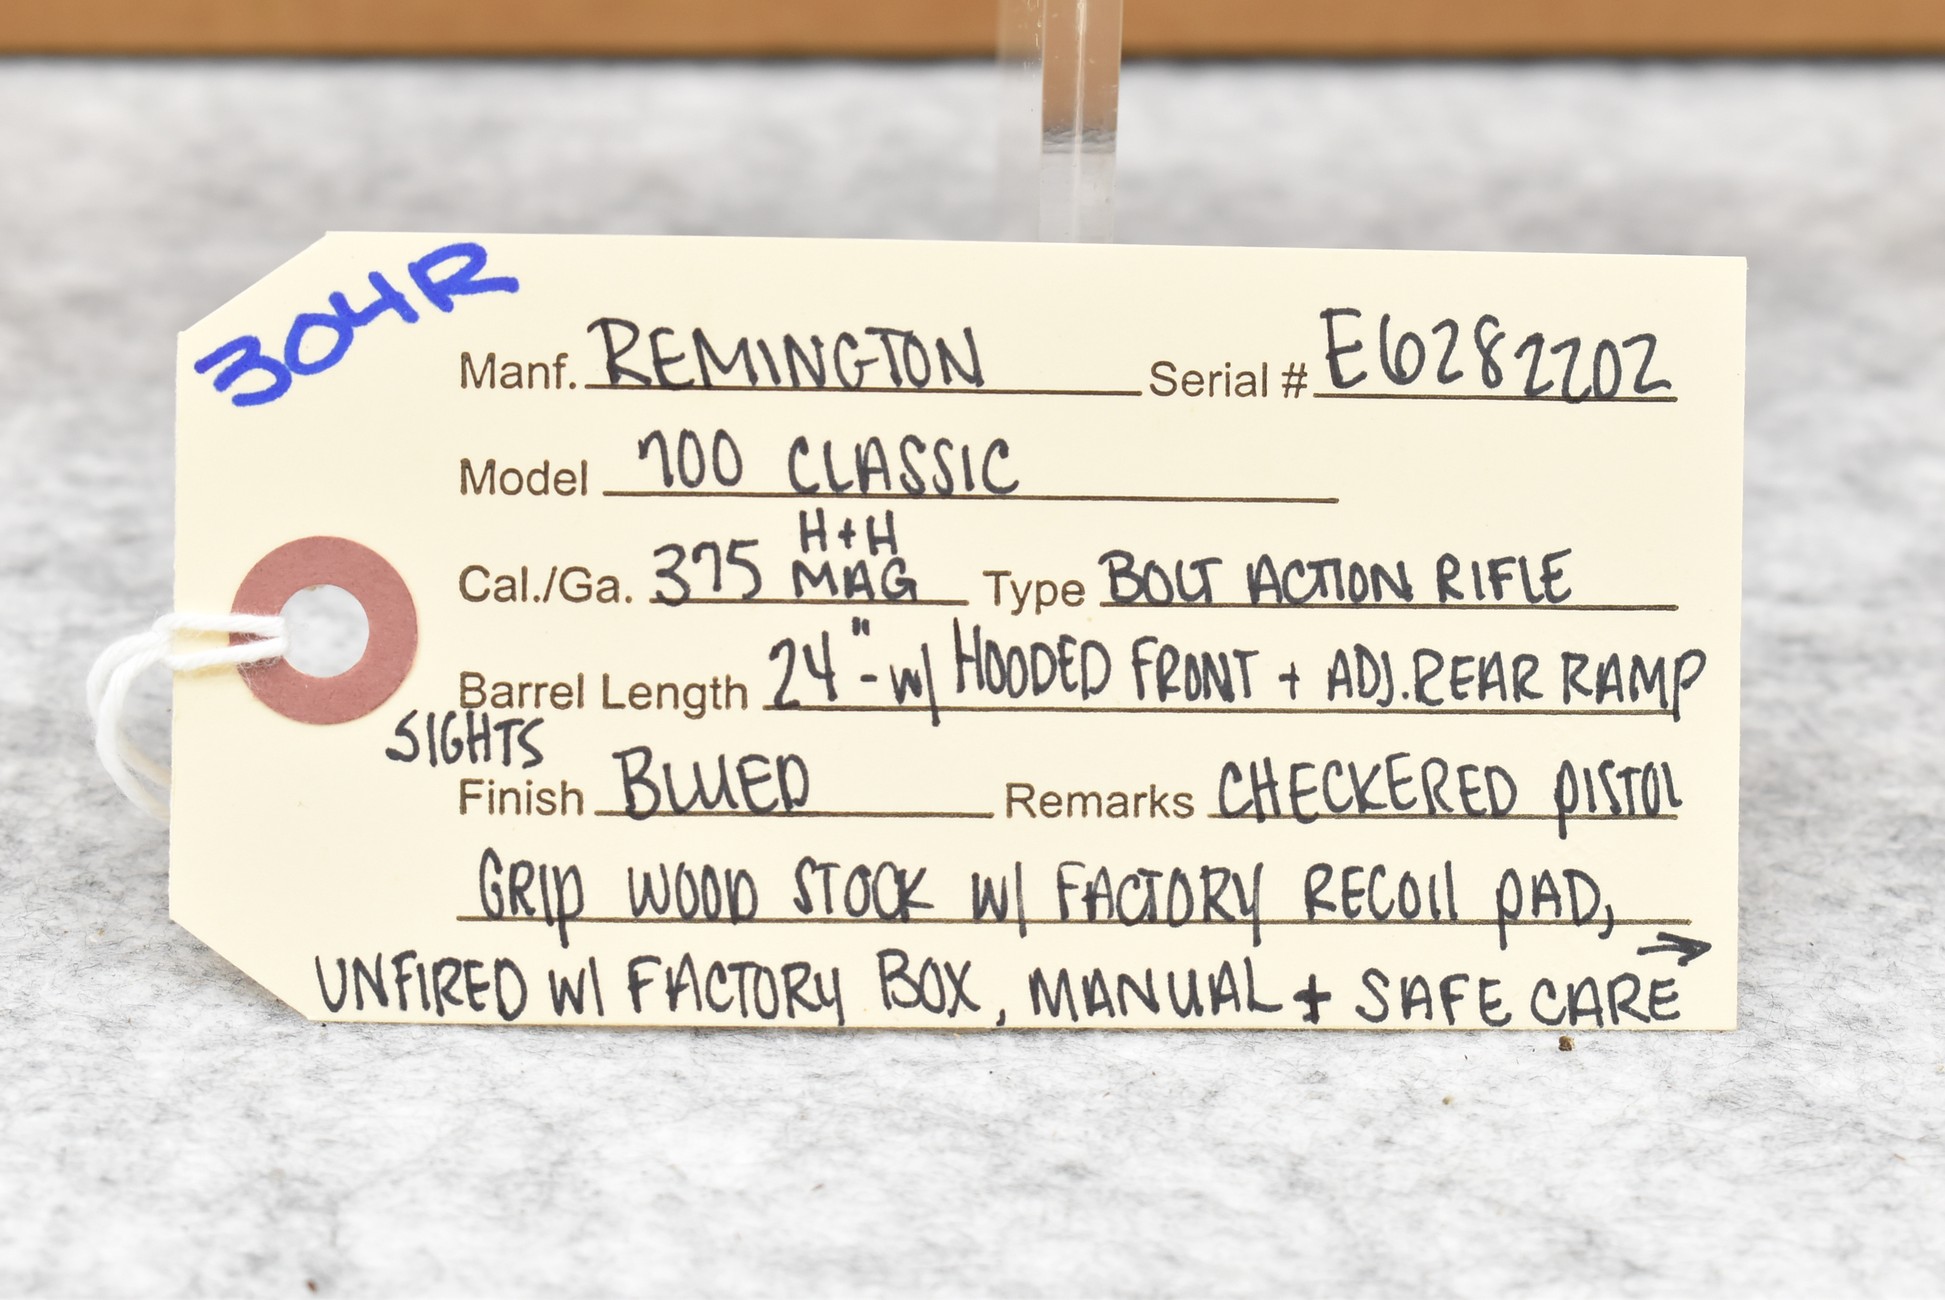 304R
Manf. REMINGTON Serial # E6282202
Model 700 CLASSIC
Cal./Ga. 375 H+H MAG Type BOLT ACTION RIFLE
Barrel Length 24"-w/ HOODED FRONT + ADJ. REAR RAMP
SIGHTS
Finish BLUED Remarks CHECKERED PISTOL
GRIP WOOD STOCK W/ FACTORY RECOIL PAD,
UNFIRED W/ FACTORY BOX, MANUAL + SAFE CARE →